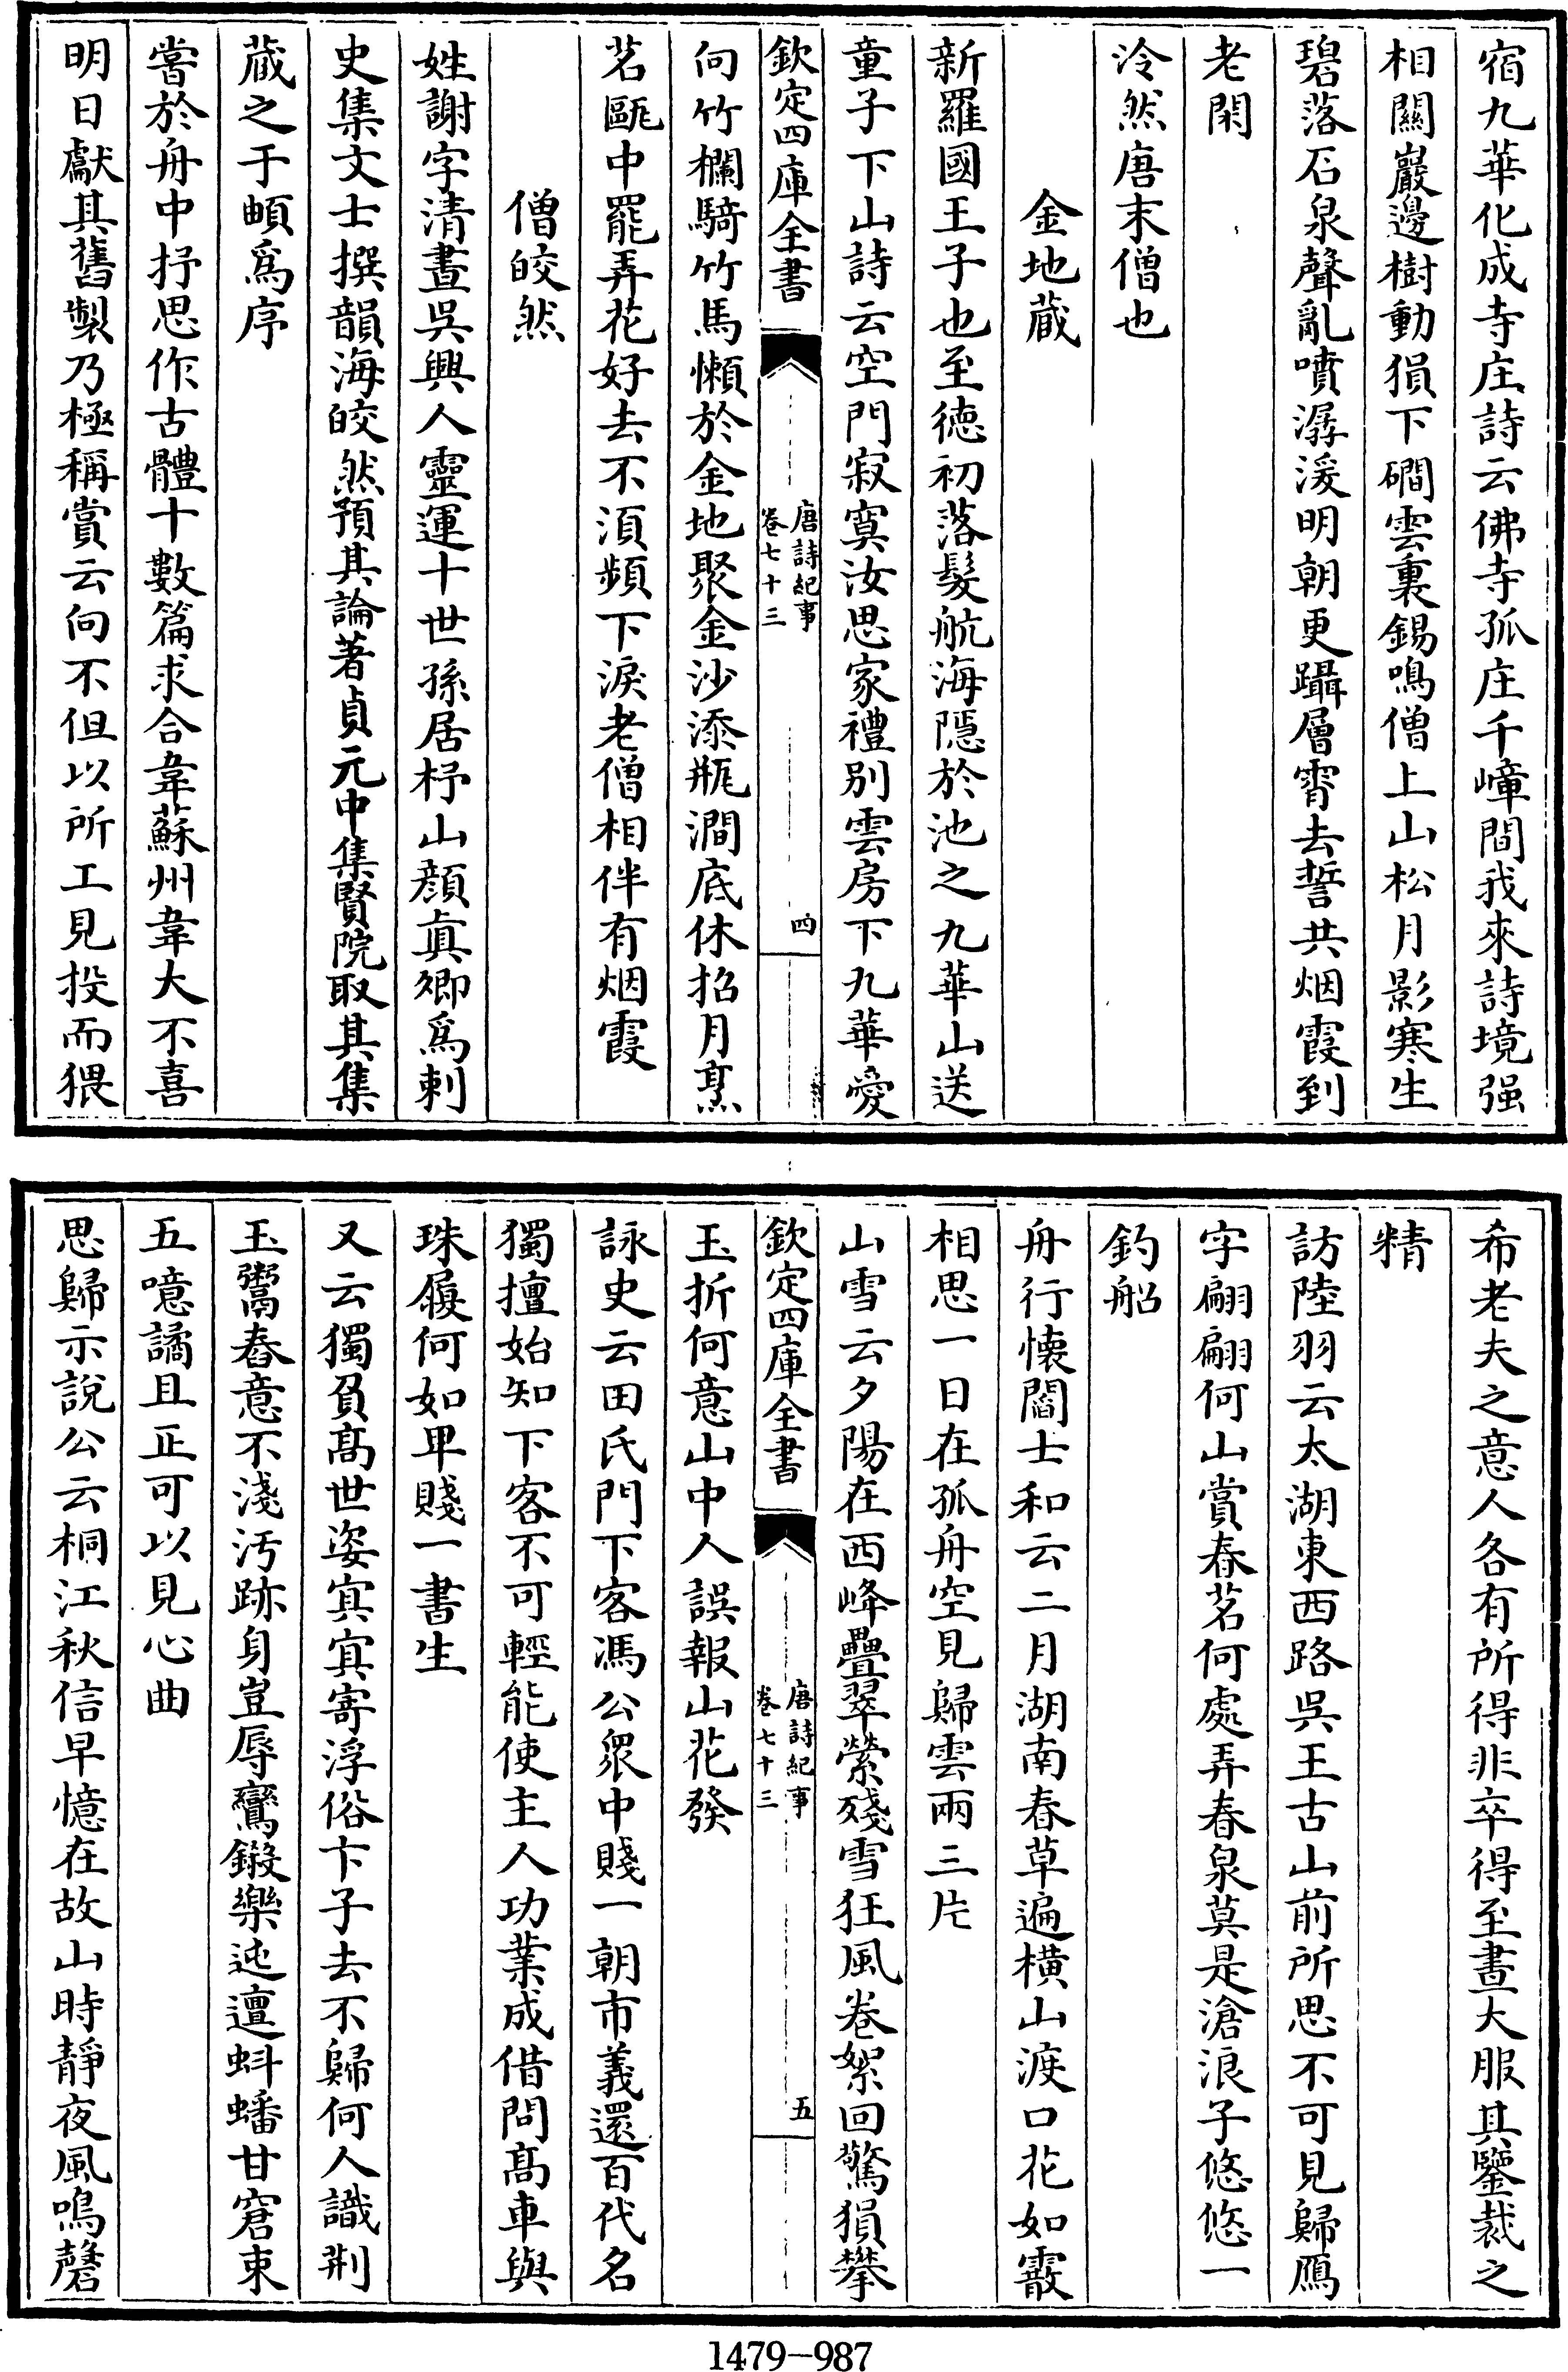 宿九華化成寺庄詩云佛寺孤庄千嶂間我來詩境强
相關巖邊樹動猿下磵雲裏錫鳴僧上山松月影寒生
碧落石泉聲亂噴潺湲明朝更躡層霄去誓共烟霞到
老閑
泠然唐末僧也
金地藏
新羅國王子也至徳初落髮航海隱於池之九華山送
童子下山詩云空門寂寞汝思家禮别雲房下九華愛
欽定四庫全書
唐詩紀事
卷七十三
四
向竹欄騎竹馬懶於金地聚金沙添瓶澗底休招月烹
茗甌中罷弄花好去不湏頻下淚老僧相伴有烟霞
僧皎然
姓謝字清晝吳興人靈運十世孫居杼山顔真卿為刺
史集文士撰韻海皎然預其論著貞元中集賢院取其集
藏之于頔為序
嘗於舟中抒思作古體十數篇求合韋蘇州韋大不喜
明日獻其舊製乃極稱賞云向不但以所工見投而猥
希老夫之意人各有所得非卒得至晝大服其鑒裁之
精
訪陸羽云太湖東西路吳王古山前所思不可見歸鴈
字翩翩何山賞春茗何處弄春泉莫是滄浪子悠悠一
釣船
舟行懐閻士和云二月湖南春草遍横山渡口花如霰
相思一日在孤舟空見歸雲兩三片
山雪云夕陽在西峰疊翠縈殘雪狂風卷絮回驚猿攀
欽定四庫全書
唐詩紀事
卷七十三
五
玉折何意山中人誤報山花發
詠史云田氏門下客馮公衆中賤一朝市義還百代名
獨擅始知下客不可輕能使主人功業成借問髙車與
珠履何如卑賤一書生
又云獨負髙世姿寘寘寄浮俗卞子去不歸何人識荆
玉鬻春意不淺汚跡身豈辱鸞鎩樂迍邅蚪蟠甘窘束
五噫譎且正可以見心曲
思歸示說公云桐江秋信早憶在故山時靜夜風鳴磬
1479-987